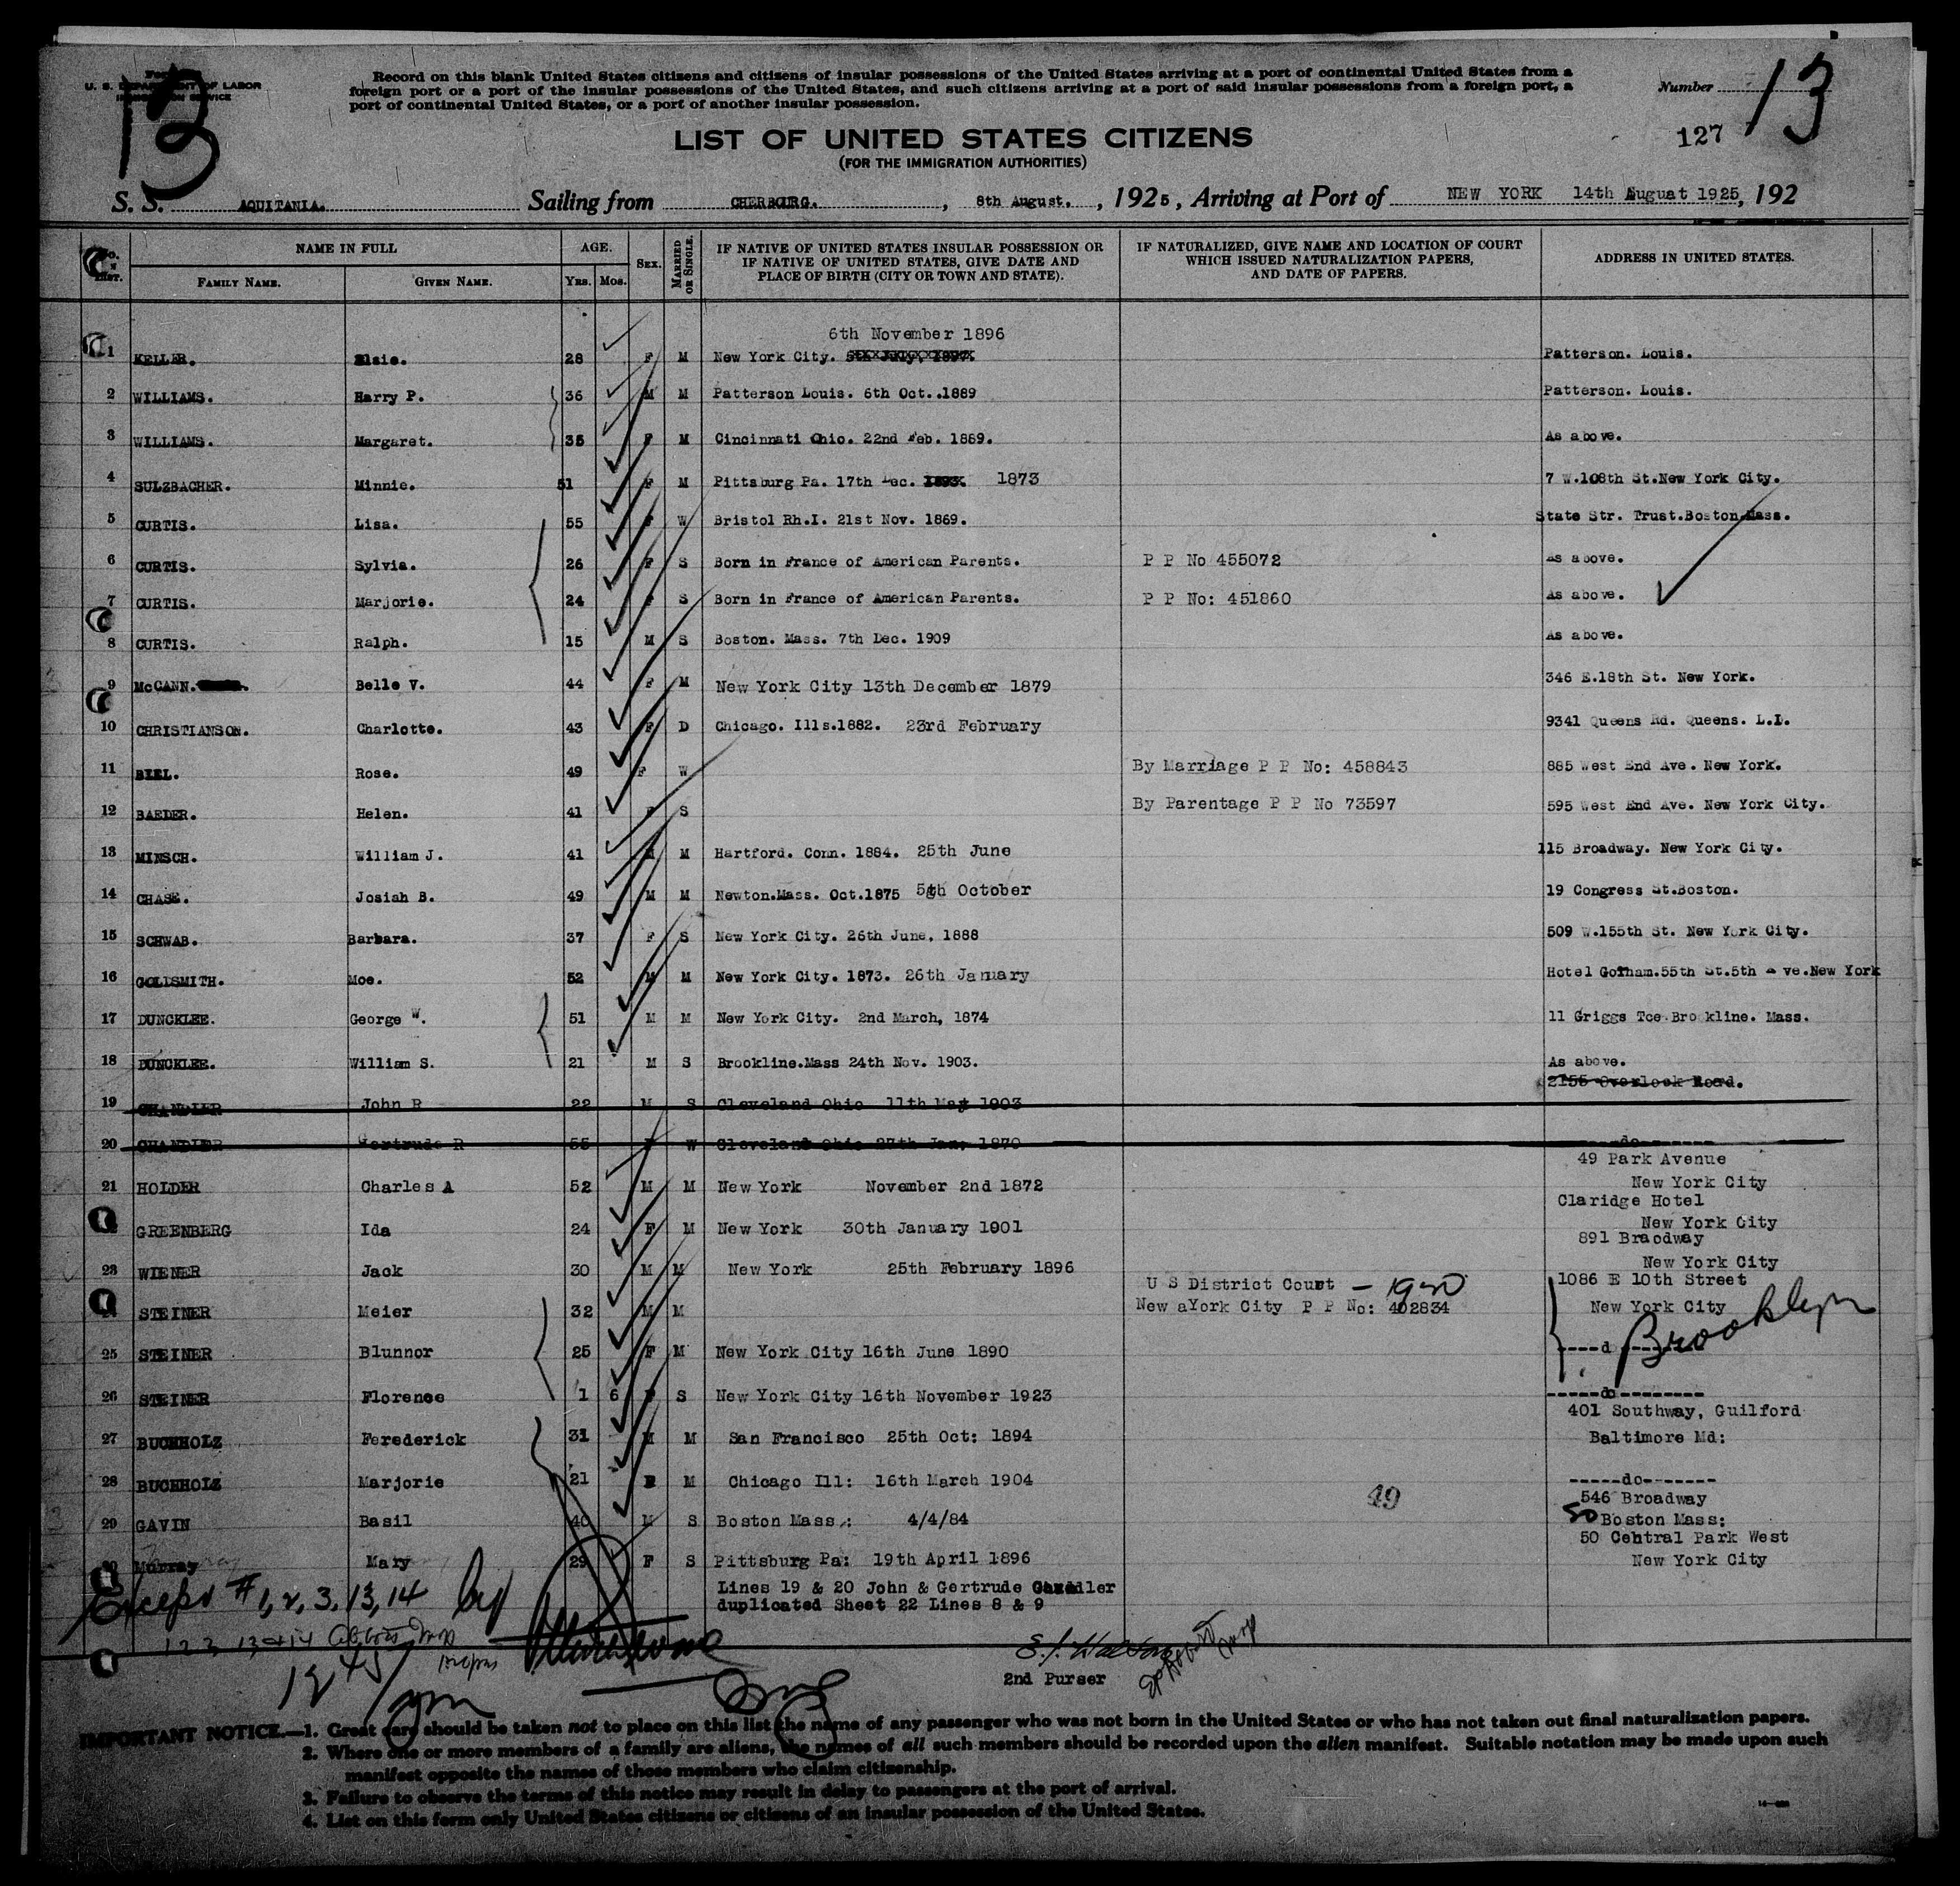 13
U. S. DEPARTMENT OF LABOR
IMMIGRATION SERVICE
Record on this blank United States citizens and citizens of insular possessions of the United States arriving at a port of continental United States from a
foreign port or a port of the insular possessions of the United States, and such citizens arriving at a port of said insular possessions from a foreign port, a
port of continental United States, or a port of another insular possession.
Number 13
127
LIST OF UNITED STATES CITIZENS
(FOR THE IMMIGRATION AUTHORITIES)
S. S. AQUITANIA. Sailing from CHERBOURG. , 8th August. , 1925, Arriving at Port of NEW YORK 14th Auguat 1925, 192
NAME IN FULL AGE. SEX. MARRIED OR SINGLE. IF NATIVE OF UNITED STATES INSULAR POSSESSION OR IF NATIVE OF UNITED STATES, GIVE DATE AND PLACE OF BIRTH (CITY OR TOWN AND STATE). IF NATURALIZED, GIVE NAME AND LOCATION OF COURT WHICH ISSUED NATURALIZATION PAPERS, AND DATE OF PAPERS. ADDRESS IN UNITED STATES.
FAMILY NAME. GIVEN NAME. YRS. MOS.
6th November 1896
1 KELLER. Elsie. 28 F M New York City. Patterson. Louis.
2 WILLIAMS. Harry P. 36 M M Patterson Louis. 6th Oct..1889 Patterson. Louis.
3 WILLIAMS. Margaret. 35 F M Cincinnati Ohio. 22nd Feb. 1889. As above.
4 SULZBACHER. Minnie. 51 F M Pittsburg Pa. 17th Dec. 1873 7 W.108th St.New York City.
5 CURTIS. Lisa. 55 F W Bristol Rh.I. 21st Nov. 1869. State Str. Trust.Boston.Mass.
6 CURTIS. Sylvia. 26 F S Born in France of American Parents. P P No 455072 As above.
7 CURTIS. Marjorie. 24 F S Born in France of American Parents. P P No: 451860 As above.
8 CURTIS. Ralph. 15 M S Boston. Mass. 7th Dec. 1909 As above.
9 McCANN. Belle V. 44 F M New York City 13th December 1879 346 E.18th St. New York.
10 CHRISTIANSON. Charlotte. 43 F D Chicago. Ills.1882. 23rd February 9341 Queens Rd. Queens. L.I.
11 BIEL. Rose. 49 F W By Marriage P P No: 458843 885 West End Ave. New York.
12 BAEDER. Helen. 41 F S By Parentage P P No 73597 595 West End Ave. New York City.
13 MINSCH. William J. 41 M M Hartford. Conn. 1884. 25th June 115 Broadway. New York City.
14 CHASE. Josiah B. 49 M M Newton.Mass. Oct.1875 5th October 19 Congress St.Boston.
15 SCHWAB. Barbara. 37 F S New York City. 26th June, 1888 509 W.155th St. New York City.
16 GOLDSMITH. Moe. 52 M M New York City. 1873. 26th January Hotel Gotham.55th St.5th Ave.New York
17 DUNCKLEE. George W. 51 M M New York City. 2nd March, 1874 11 Griggs Tce.Brookline. Mass.
18 DUNCKLEE. William S. 21 M S Brookline.Mass 24th Nov. 1903. As above.
2155 Overlook Road.
19 CHANDLER John R 22 M S Cleveland Ohio 11th May 1903
20 CHANDLER Gertrude R 55 F W Cleveland Ohio 27th Jan, 1870 ----do----
49 Park Avenue
21 HOLDER Charles A 52 M M New York November 2nd 1872 New York City
Claridge Hotel
GREENBERG Ida 24 F M New York 30th January 1901 New York City
891 Braodway
23 WIENER Jack 30 M M New York 25th February 1896 New York City
U S District Court - 1920 1086 E 10th Street
STEINER Meier 32 M M New aYork City P P No: 402834 New York City Brooklyn
25 STEINER Blunnor 25 F M New York City 16th June 1890 ----d
26 STEINER Florence 1 6 F S New York City 16th November 1923 -----do--------
401 Southway, Guilford
27 BUCHHOLZ Ferederick 31 M M San Francisco 25th Oct: 1894 Baltimore Md:
28 BUCHHOLZ Marjorie 21 F M Chicago Ill: 16th March 1904 -----do-------
49 546 Broadway
29 GAVIN Basil 40 M S Boston Mass: 4/4/84 50 Boston Mass:
50 Central Park West
30 Murray Mary 29 F S Pittsburg Pa: 19th April 1896 New York City
Lines 19 & 20 John & Gertrude Chandler
duplicated Sheet 22 Lines 8 & 9
Except #1, 2, 3, 13, 14 by
1 2 3 13 & 14
2nd Purser
IMPORTANT NOTICE.—1. Great care should be taken not to place on this list the name of any passenger who was not born in the United States or who has not taken out final naturalization papers.
2. Where one or more members of a family are aliens, the names of all such members should be recorded upon the alien manifest. Suitable notation may be made upon such
manifest opposite the names of those members who claim citizenship.
3. Failure to observe the terms of this notice may result in delay to passengers at the port of arrival.
4. List on this form only United States citizens or citizens of an insular possession of the United States.